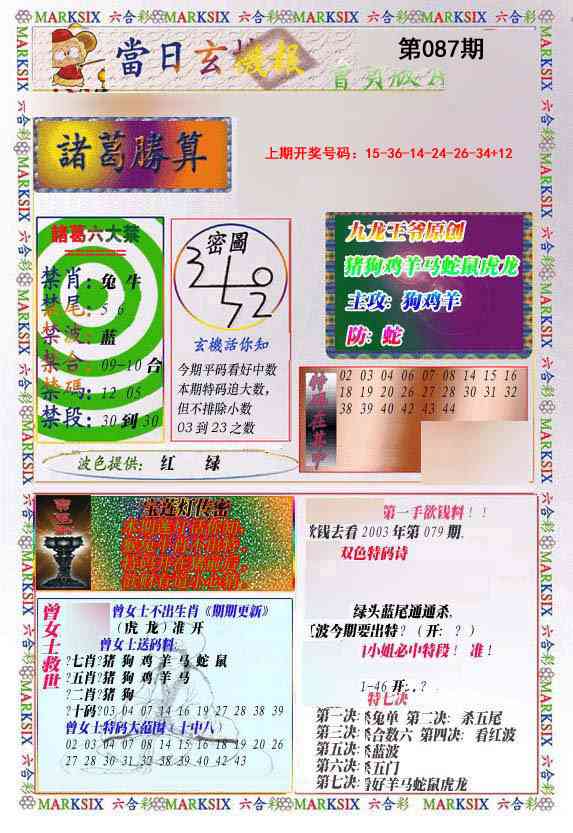 MARKSIX 六合彩 MARKSIX 六合彩 MARKSIX 六合彩 MARKSIX 六合彩 MARKSIX
當日玄機报
第087期
諸葛勝算
上期开奖号码：15-36-14-24-26-34+12
諸葛六大禁
禁肖：兔 牛
禁尾：5 6
禁波：蓝
禁合：09-10 合
禁碼：12 05
禁段：30 到 30
密圖
玄機活你知
今期平码看好中数
本期特码追大数，
但不排除小数
03 到 23 之数
九龙王爷原创
猪狗鸡羊马蛇鼠虎龙
主攻：狗鸡羊
防：蛇
特码在其中
02 03 04 06 07 08 14 15 16
18 19 20 26 27 28 30 31 32
38 39 40 42 43 44
波色提供： 红 绿
宝莲灯传密
曾女士救世
曾女士不出生肖《期期更新》
（虎 龙）准 开
曾女士送码料
七肖?猪 狗 鸡 羊 马 蛇 鼠
五肖?猪 狗 鸡 羊 马
二肖?猪 狗
十码?03 04 07 14 16 19 27 28 38 39
曾女士特码大范围〔十中八〕
02 03 04 07 08 14 15 16 18 19 20 26
27 28 30 31 32 38 39 40 42 43
第一手欲钱料！！
欲钱去看 2003 年第 079 期.
双色特码诗
绿头蓝尾通通杀,
波今期要出特?（ 开: ? ）
小姐必中特段！ 准！
1-46 开:..?
特七决
第一决:杀兔单 第二决: 杀五尾
第三决:杀合数六 第四决: 看红波
第五决:杀蓝波
第六决:杀五门
第七决:看好羊马蛇鼠虎龙
MARKSIX 六合彩 MARKSIX 六合彩 MARKSIX 六合彩 MARKSIX 六合彩 MARKSIX